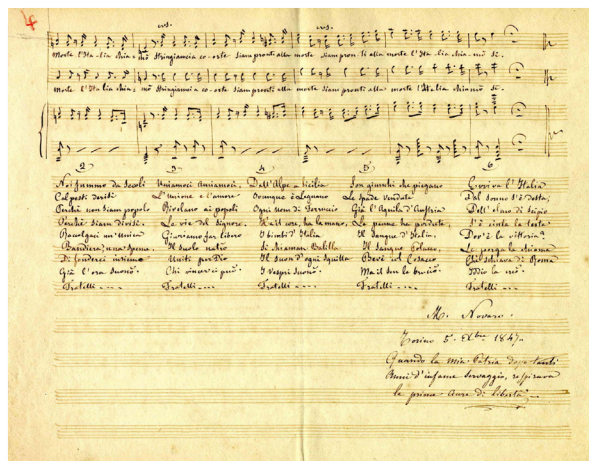 crs.
crs.
morte l'Ita-lia chia: mò Stringiamcia co-orte siam pronti alla morte siam pron-ti alla morte l'Ita-lia chia-mò si.
morte l'Ita lia chia: mò Stringiamcia co-orte siam pronti alla morte siam pronti alla morte l'Italia chiamò si.
2
Noi fummo da Secoli
Calpesti derisi
Perchè non siam popolo
Perchè siam divisi.
Raccolgaci un'Unica
Bandiera, una speme.
Di fonderci insieme
Già l'ora suonò.
Fratelli ----
3
Uniamoci Amiamoci,
L'Unione e l'amore
Rivelano ai popoli
Le vie del Signore.
Giuriamo far libero
Il suolo natio
Uniti per Dio
Chi vincer ci può.
Fratelli ---
4
Dall'Alpe a Sicilia
Dovunque è Legnano
Ogni uom di Ferruccio
Ha il cor, ha la mano,
I bimbi d'Italia
Si chiaman Balilla
Il suon d'ogni squilla
I vespri suonò.
Fratelli ---
5
Son giunchi che piegano
Le Spade Vendute
Già l'Aquila d'Austria
Le penne ha perdute,
Il sangue d'Italia,
Il Sangue Polacco,
Bevè col Cosacco
Ma il sen le bruciò.
Fratelli ---
6
Evviva l'Italia
Dal sonno s'è desta,
Dell'elmo di Scipio
S'è cinta la testa
Dov'è la vittoria?
Le porga la chioma
Chè schiava di Roma
Iddio la creò.
Fratelli ---
M. Novaro.
Torino 5. Xbre 1847.
Quando la mia Patria dopo tanti
Anni d'infame servaggio, respirava
le prime Aure di libertà.